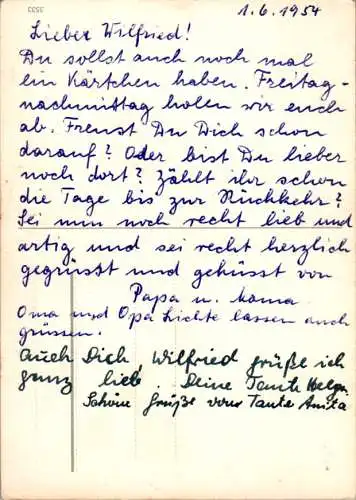 3533
1.6.1954
Lieber Wilfried!
Du sollst auch noch mal
ein Kärtchen haben. Freitag-
nachmittag holen wir euch
ab. Freust Du Dich schon
darauf? Oder bist Du lieber
noch dort? Zählt ihr schon
die Tage bis zur Rückkehr?
Sei nun noch recht lieb und
artig und sei recht herzlich
gegrüsst und geküsst von
Papa u. Mama
Oma und Opa Lichte lassen auch
grüssen.
Auch Dich, Wilfried grüße ich
ganz lieb. Deine Tante Helga.
Schöne Grüße von Tante Anita